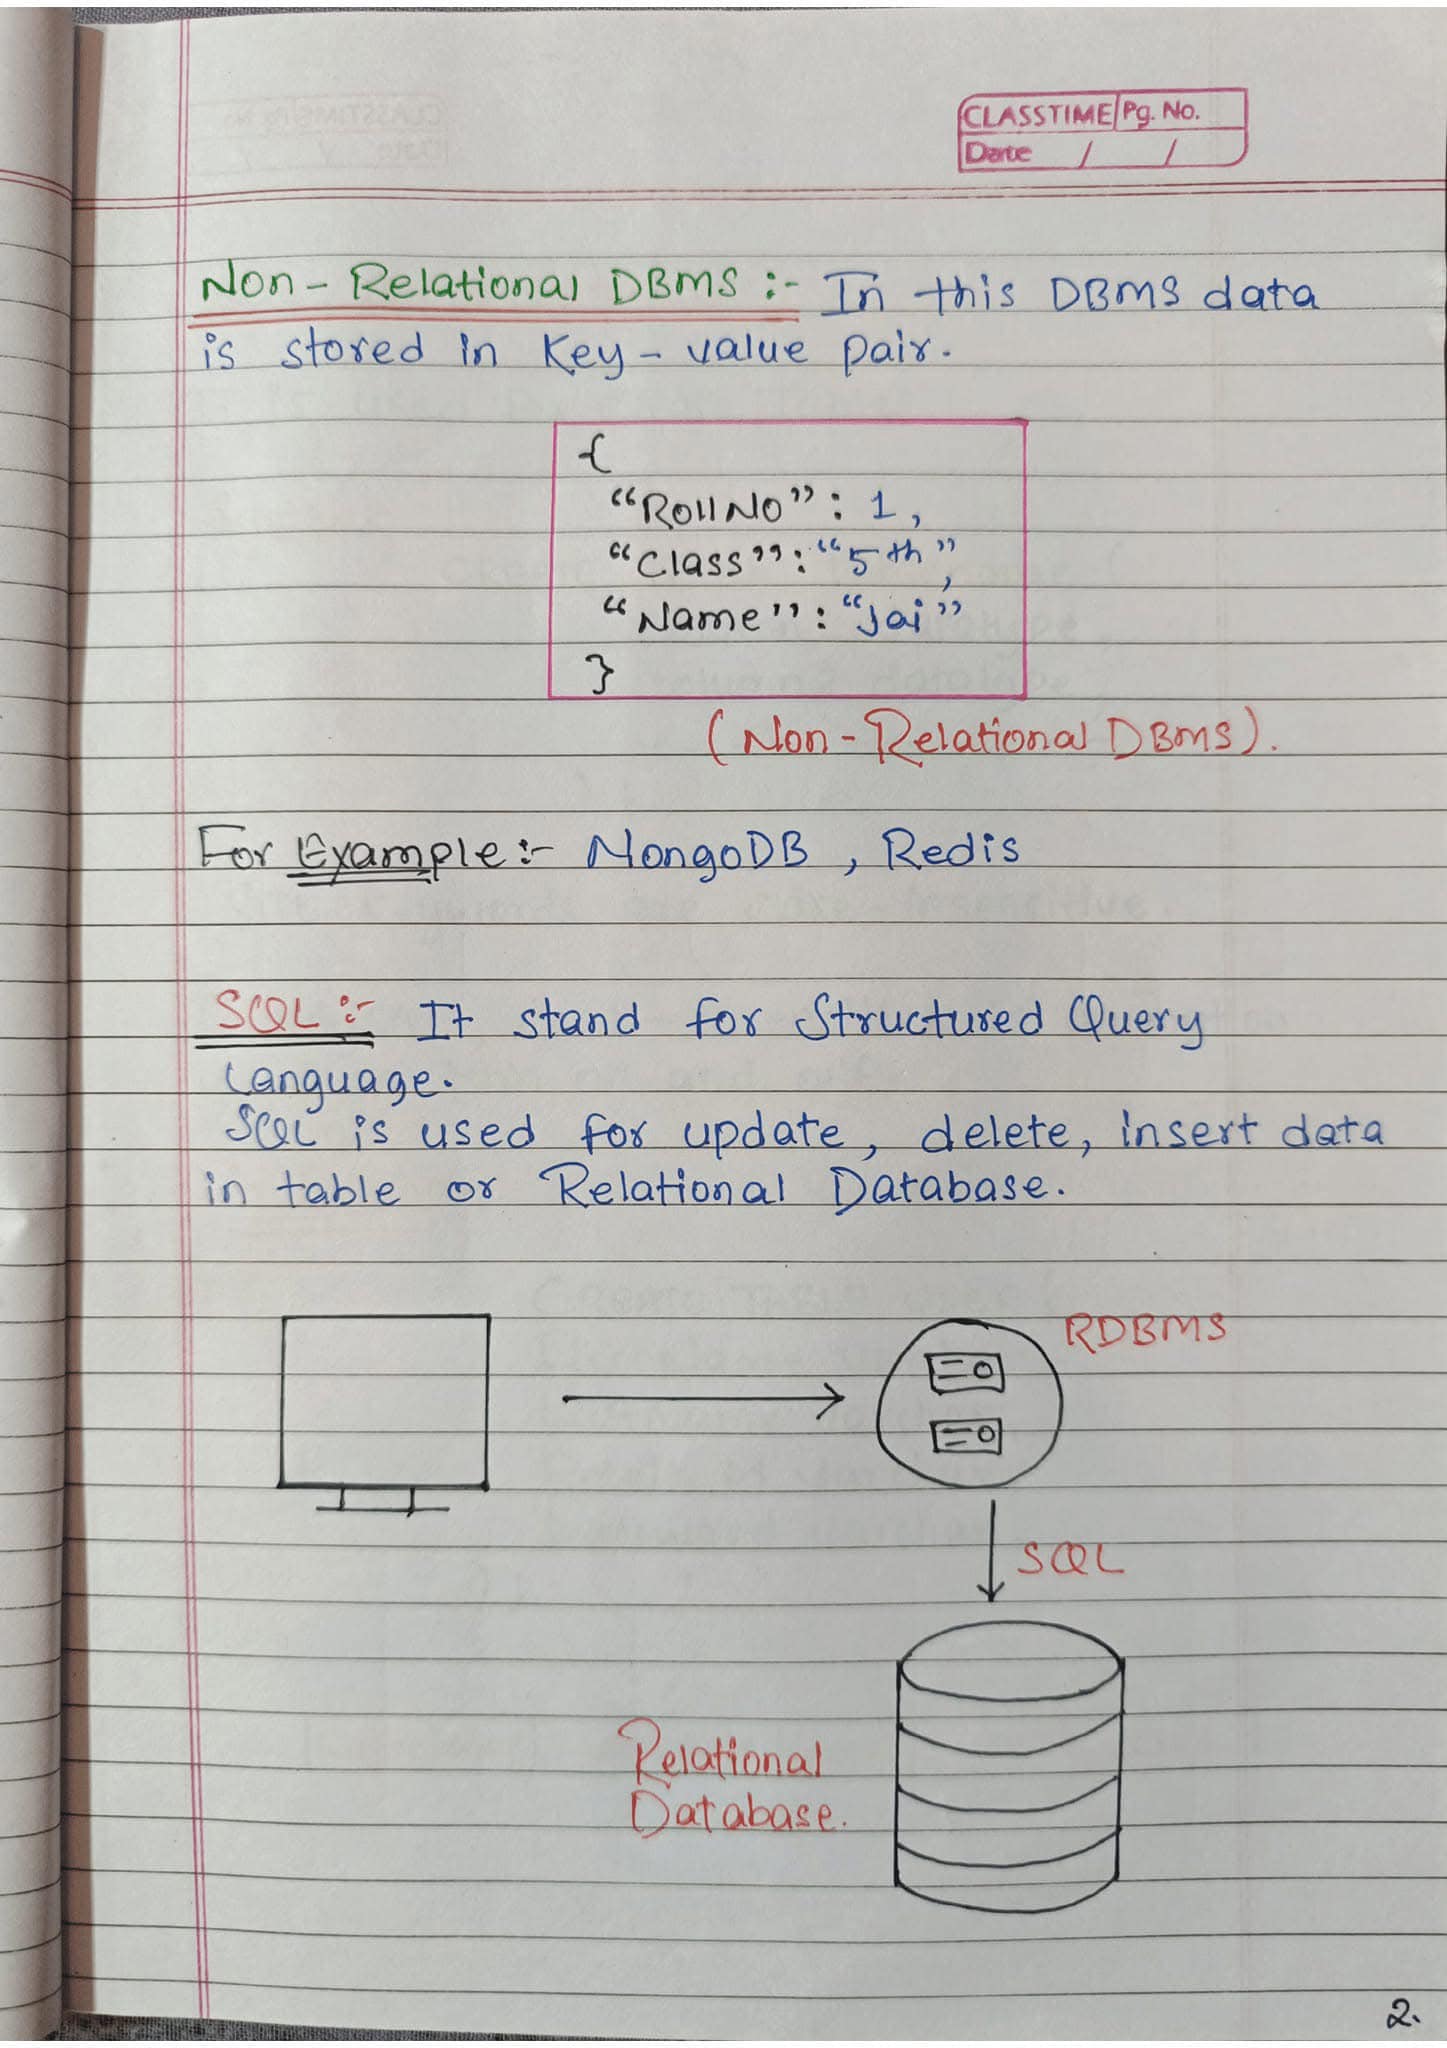 CLASSTIME Pg. No.
Date / /
Non-Relational DBMS :- In this DBMS data
is stored in Key-value pair.
{
"RollNo": 1,
"Class": "5th",
"Name": "Jai"
}
(Non-Relational DBMS).
For Example:- MongoDB, Redis
SQL:- It stand for Structured Query
Language.
SQL is used for update, delete, insert data
in table or Relational Database.
RDBMS
SQL
Relational
Database.
2.